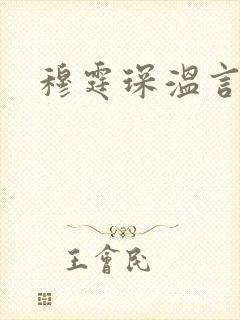 穆霆琛温言
王會民